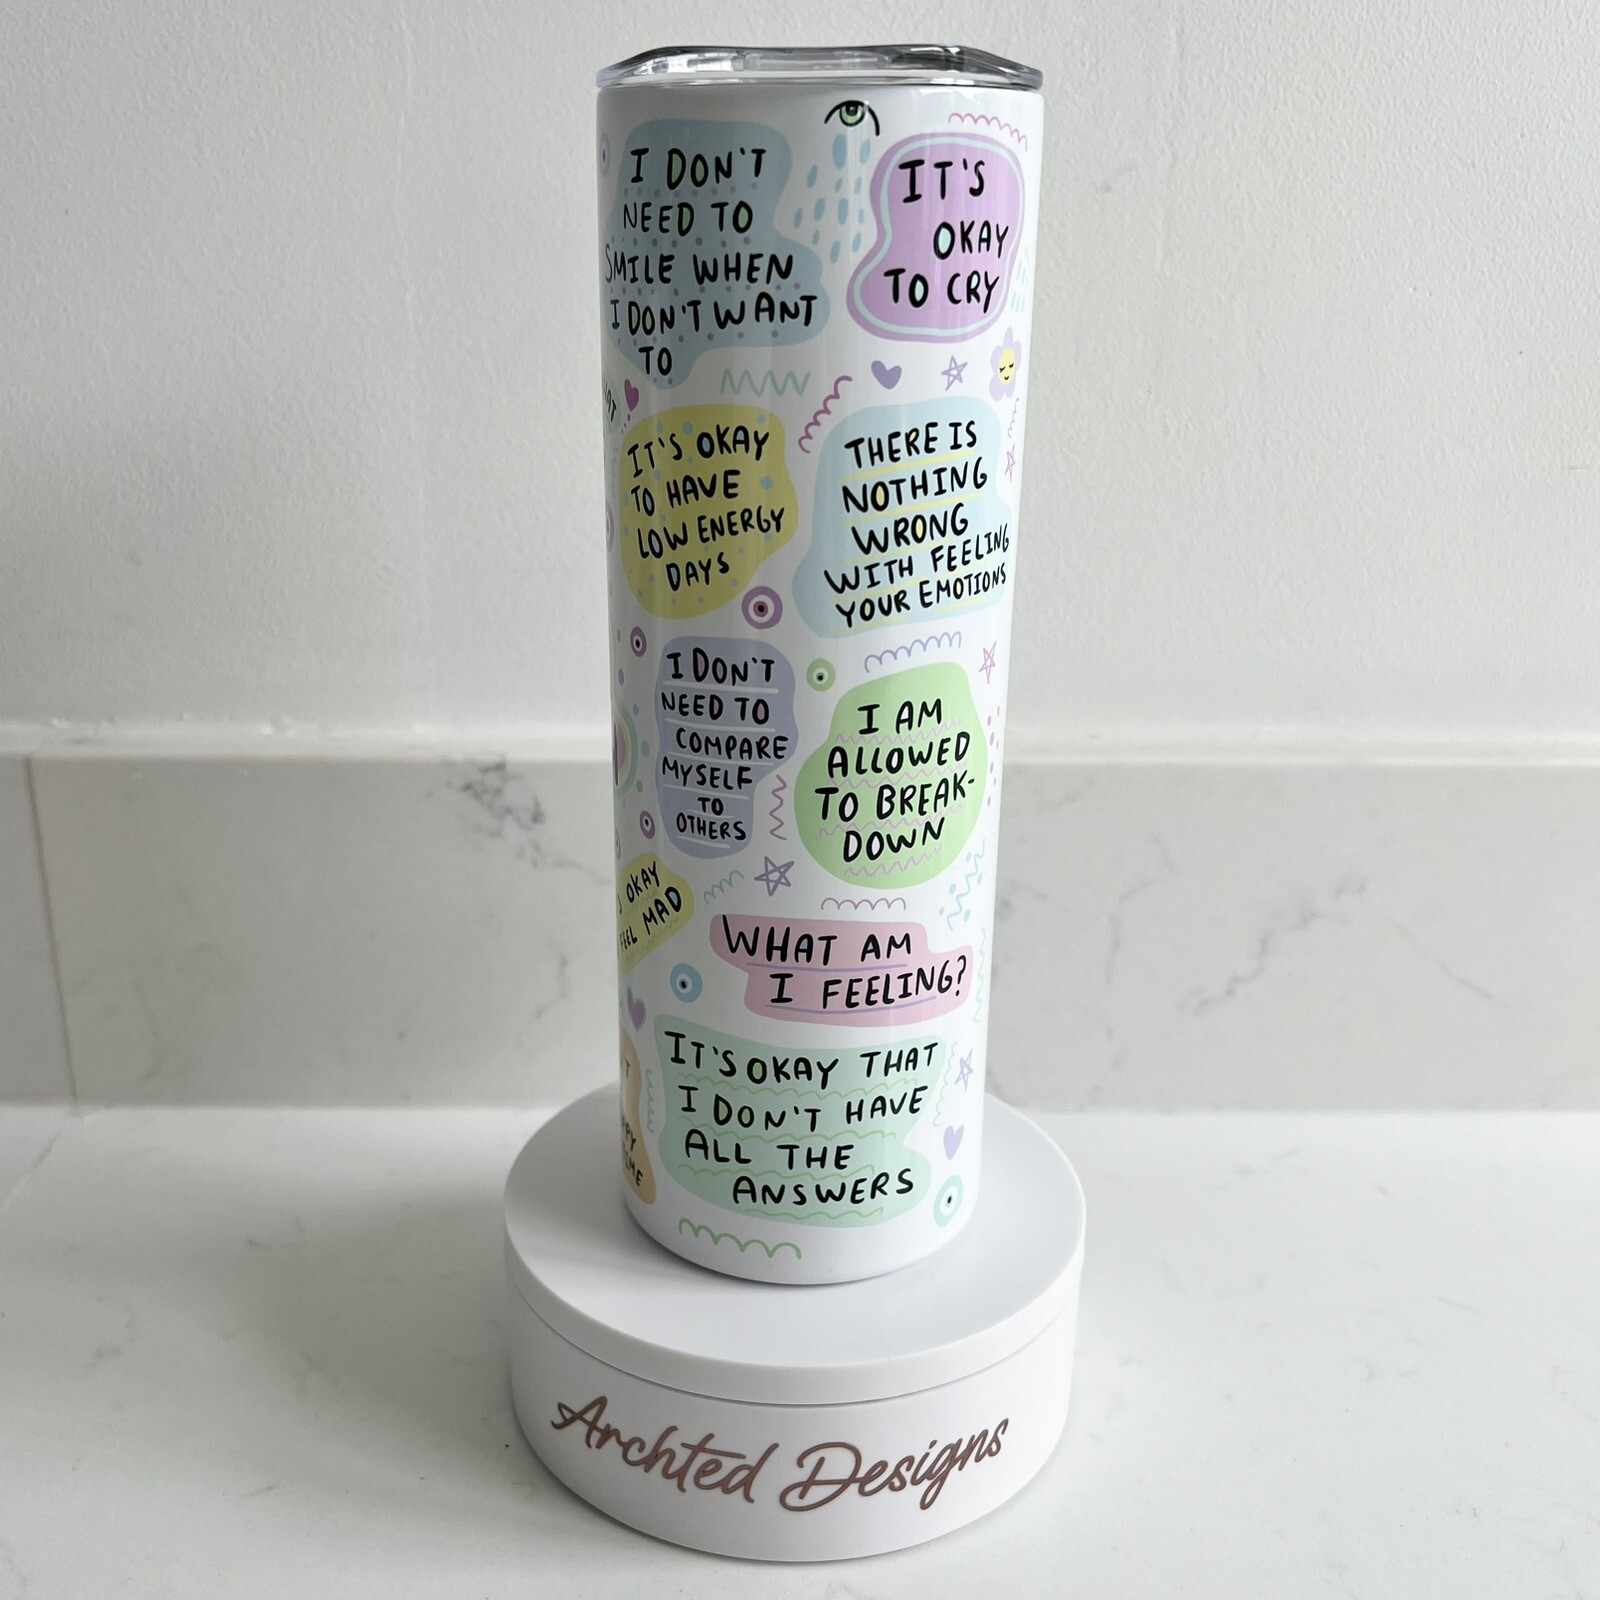 I DON'T
NEED TO
SMILE WHEN
I DON'T WANT
TO
IT'S
OKAY
TO CRY
IT'S OKAY
TO HAVE
LOW ENERGY
DAYS
THERE IS
NOTHING
WRONG
WITH FEELING
YOUR EMOTIONS
I DON'T
NEED TO
COMPARE
MYSELF
TO
OTHERS
I AM
ALLOWED
TO BREAK-
DOWN
OKAY
FEEL MAD
WHAT AM
I FEELING?
IT'S OKAY THAT
I DON'T HAVE
ALL THE
ANSWERS
Archted Designs